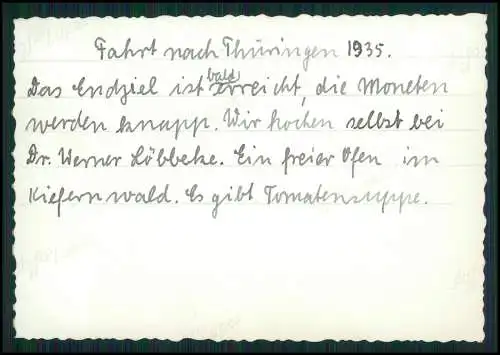 Fahrt nach Thüringen 1935.
Das Endziel ist bald erreicht, die Moneten
werden knapp. Wir kochen selbst bei
Dr. Werner Löbbeke. Ein freier Ofen im
Kiefernwald. Es gibt Tomatensuppe.